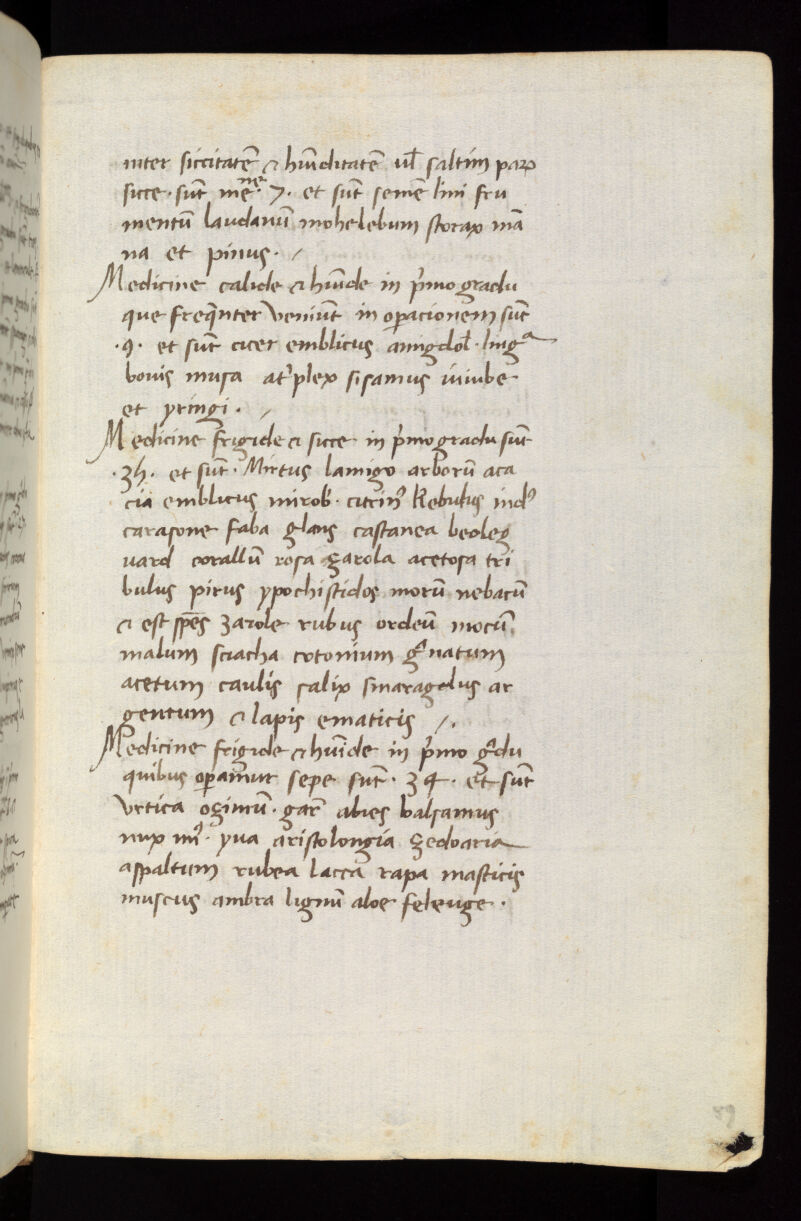 inter siccitatē & hūiditatē vł saltim paꝝ
sicce. sūt mēᶰᵉ. 7. et sūt semē lini fru
mentū laudanū mohelebum storax mā
na et pinus. /
Medicine calide & hūide in pͥmo gradu
que freqn̄ter veniūt in oꝑacionem sūt
.9. et sūt cicer emblicus amigdoł. lingᵃ
bovis musa atͥplex sisamus iuiube
et yringi. /
Medicine frigide & sicce in pͥmo gradu sūt
.3h. et sūt. Mirtus lamigo arborū aca
cia emblicus mirob. citrinꝰ kebulus indꝰ
carasone faba glans castanea beoleg
uard corallū rosa garola acetosa tri
bulus pirus ypochistidos morū nebacū
& est sp̄es zarole rubus ordeū mocū
malum sciacha cotonium gᵃnatum
acetum caulis salix smaragdus ar
gentum & lapis ematicis /.
Medicine frigide & hūide in pͥmo gᵃdu
quibus oꝑamur sepe sūt. 34. et sūt
vrtica ozimū. gar̄ abies balsamus
nux mͥ. yua aristolongia zedoaria
aspaltum rubea lacca rapa masticis
muscus ambra lignū aloe felenge.